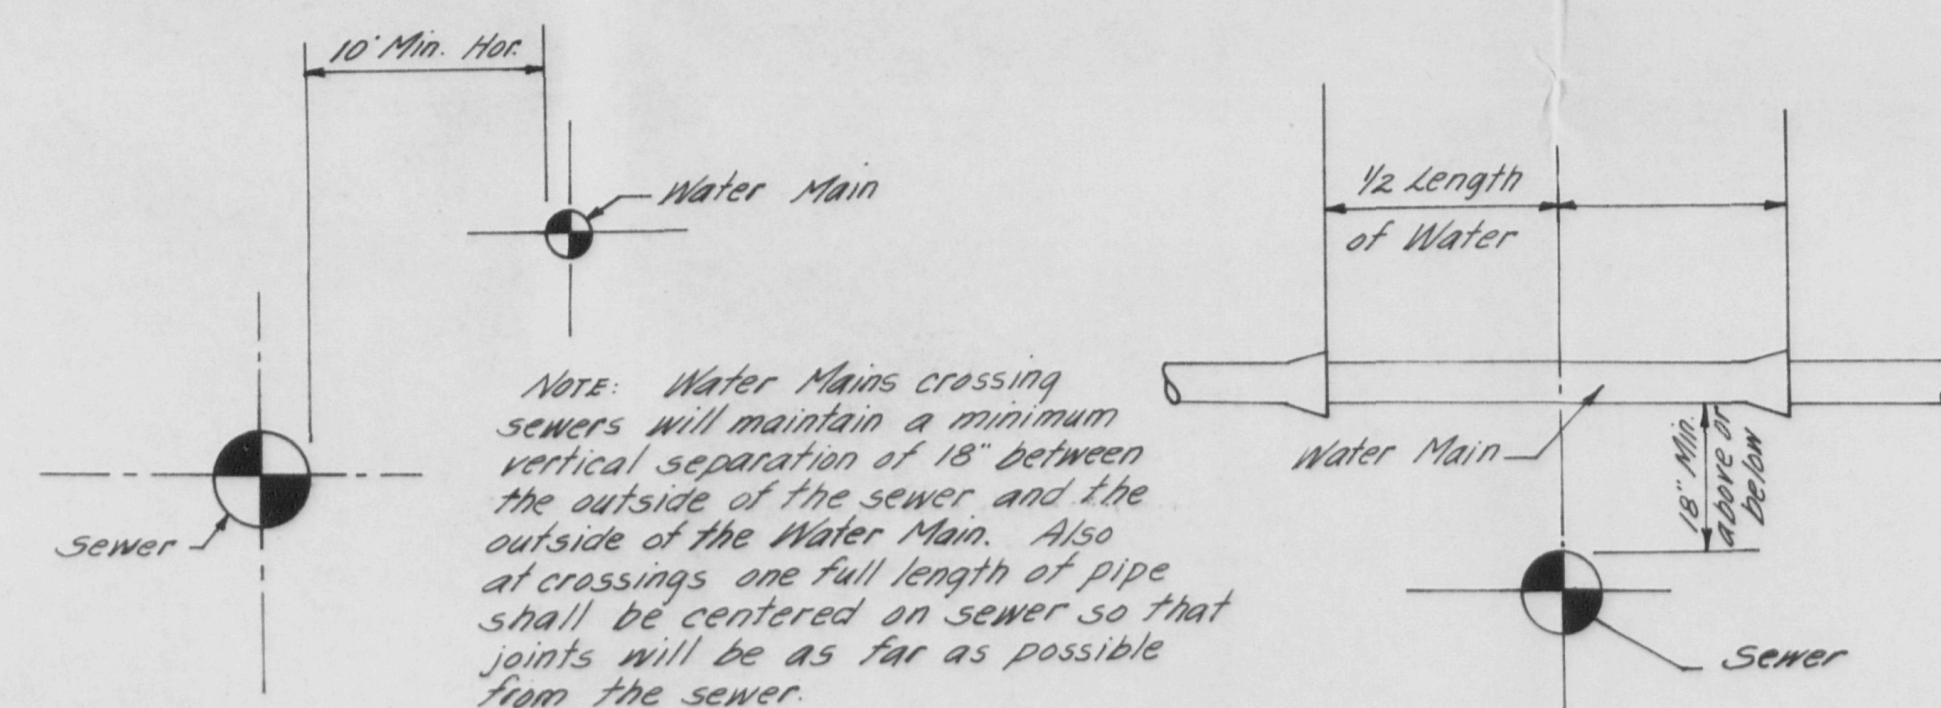 10' Min. Hor.
Water Main
Sewer
NOTE: Water Mains crossing
sewers will maintain a minimum
vertical separation of 18" between
the outside of the sewer and the
outside of the Water Main. Also
at crossings one full length of pipe
shall be centered on sewer so that
joints will be as far as possible
from the sewer.
1/2 Length
of Water
Water Main
18" Min.
above or
below
Sewer